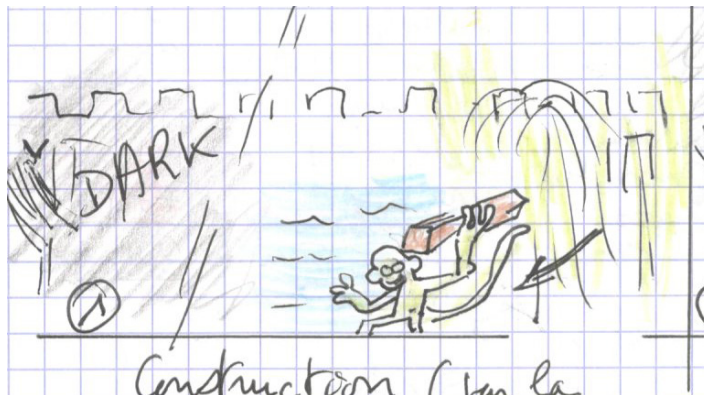 DARK
1
Construction (